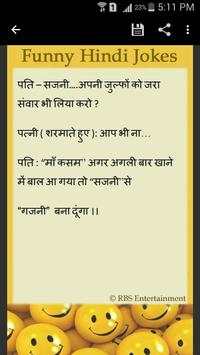 5:11 PM
Funny Hindi Jokes
पति – सजनी....अपनी जुल्फों को जरा
संवार भी लिया करो ?
पत्नी ( शरमाते हुए ): आप भी ना...
पति : "माँ कसम" अगर अगली बार खाने
में बाल आ गया तो "सजनी"से
"गजनी" बना दूंगा ।।
© RBS Entertainment